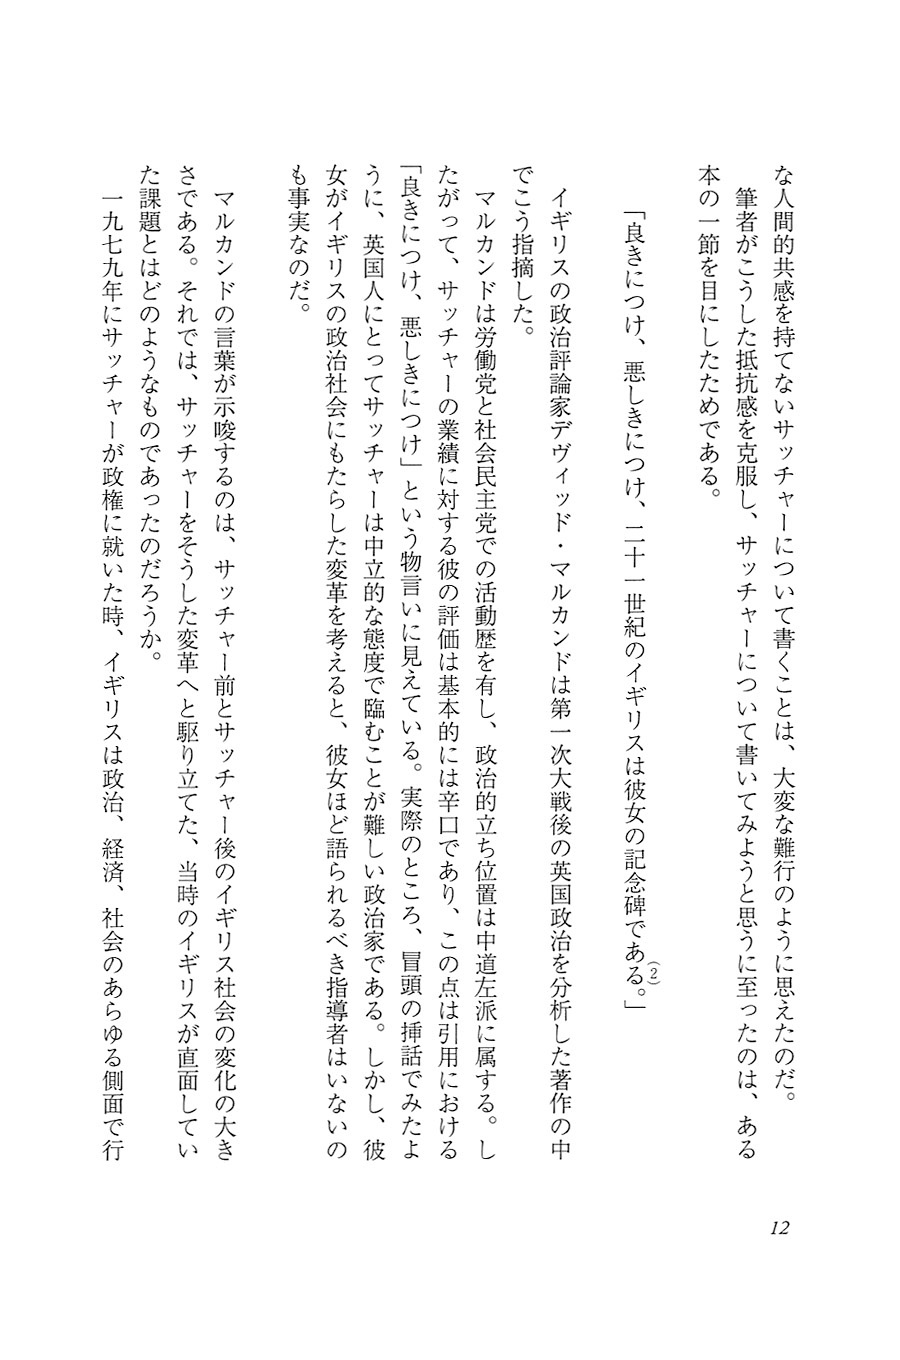 な人間的共感を持てないサッチャーについて書くことは、大変な難行のように思えたのだ。
筆者がこうした抵抗感を克服し、サッチャーについて書いてみようと思うに至ったのは、ある
本の一節を目にしたためである。
「良きにつけ、悪しきにつけ、二十一世紀のイギリスは彼女の記念碑である。(2)」
イギリスの政治評論家デヴィッド・マルカンドは第一次大戦後の英国政治を分析した著作の中
でこう指摘した。
マルカンドは労働党と社会民主党での活動歴を有し、政治的立ち位置は中道左派に属する。し
たがって、サッチャーの業績に対する彼の評価は基本的には辛口であり、この点は引用における
「良きにつけ、悪しきにつけ」という物言いに見えている。実際のところ、冒頭の挿話でみたよ
うに、英国人にとってサッチャーは中立的な態度で臨むことが難しい政治家である。しかし、彼
女がイギリスの政治社会にもたらした変革を考えると、彼女ほど語られるべき指導者はいないの
も事実なのだ。
マルカンドの言葉が示唆するのは、サッチャー前とサッチャー後のイギリス社会の変化の大き
さである。それでは、サッチャーをそうした変革へと駆り立てた、当時のイギリスが直面してい
た課題とはどのようなものであったのだろうか。
一九七九年にサッチャーが政権に就いた時、イギリスは政治、経済、社会のあらゆる側面で行
12